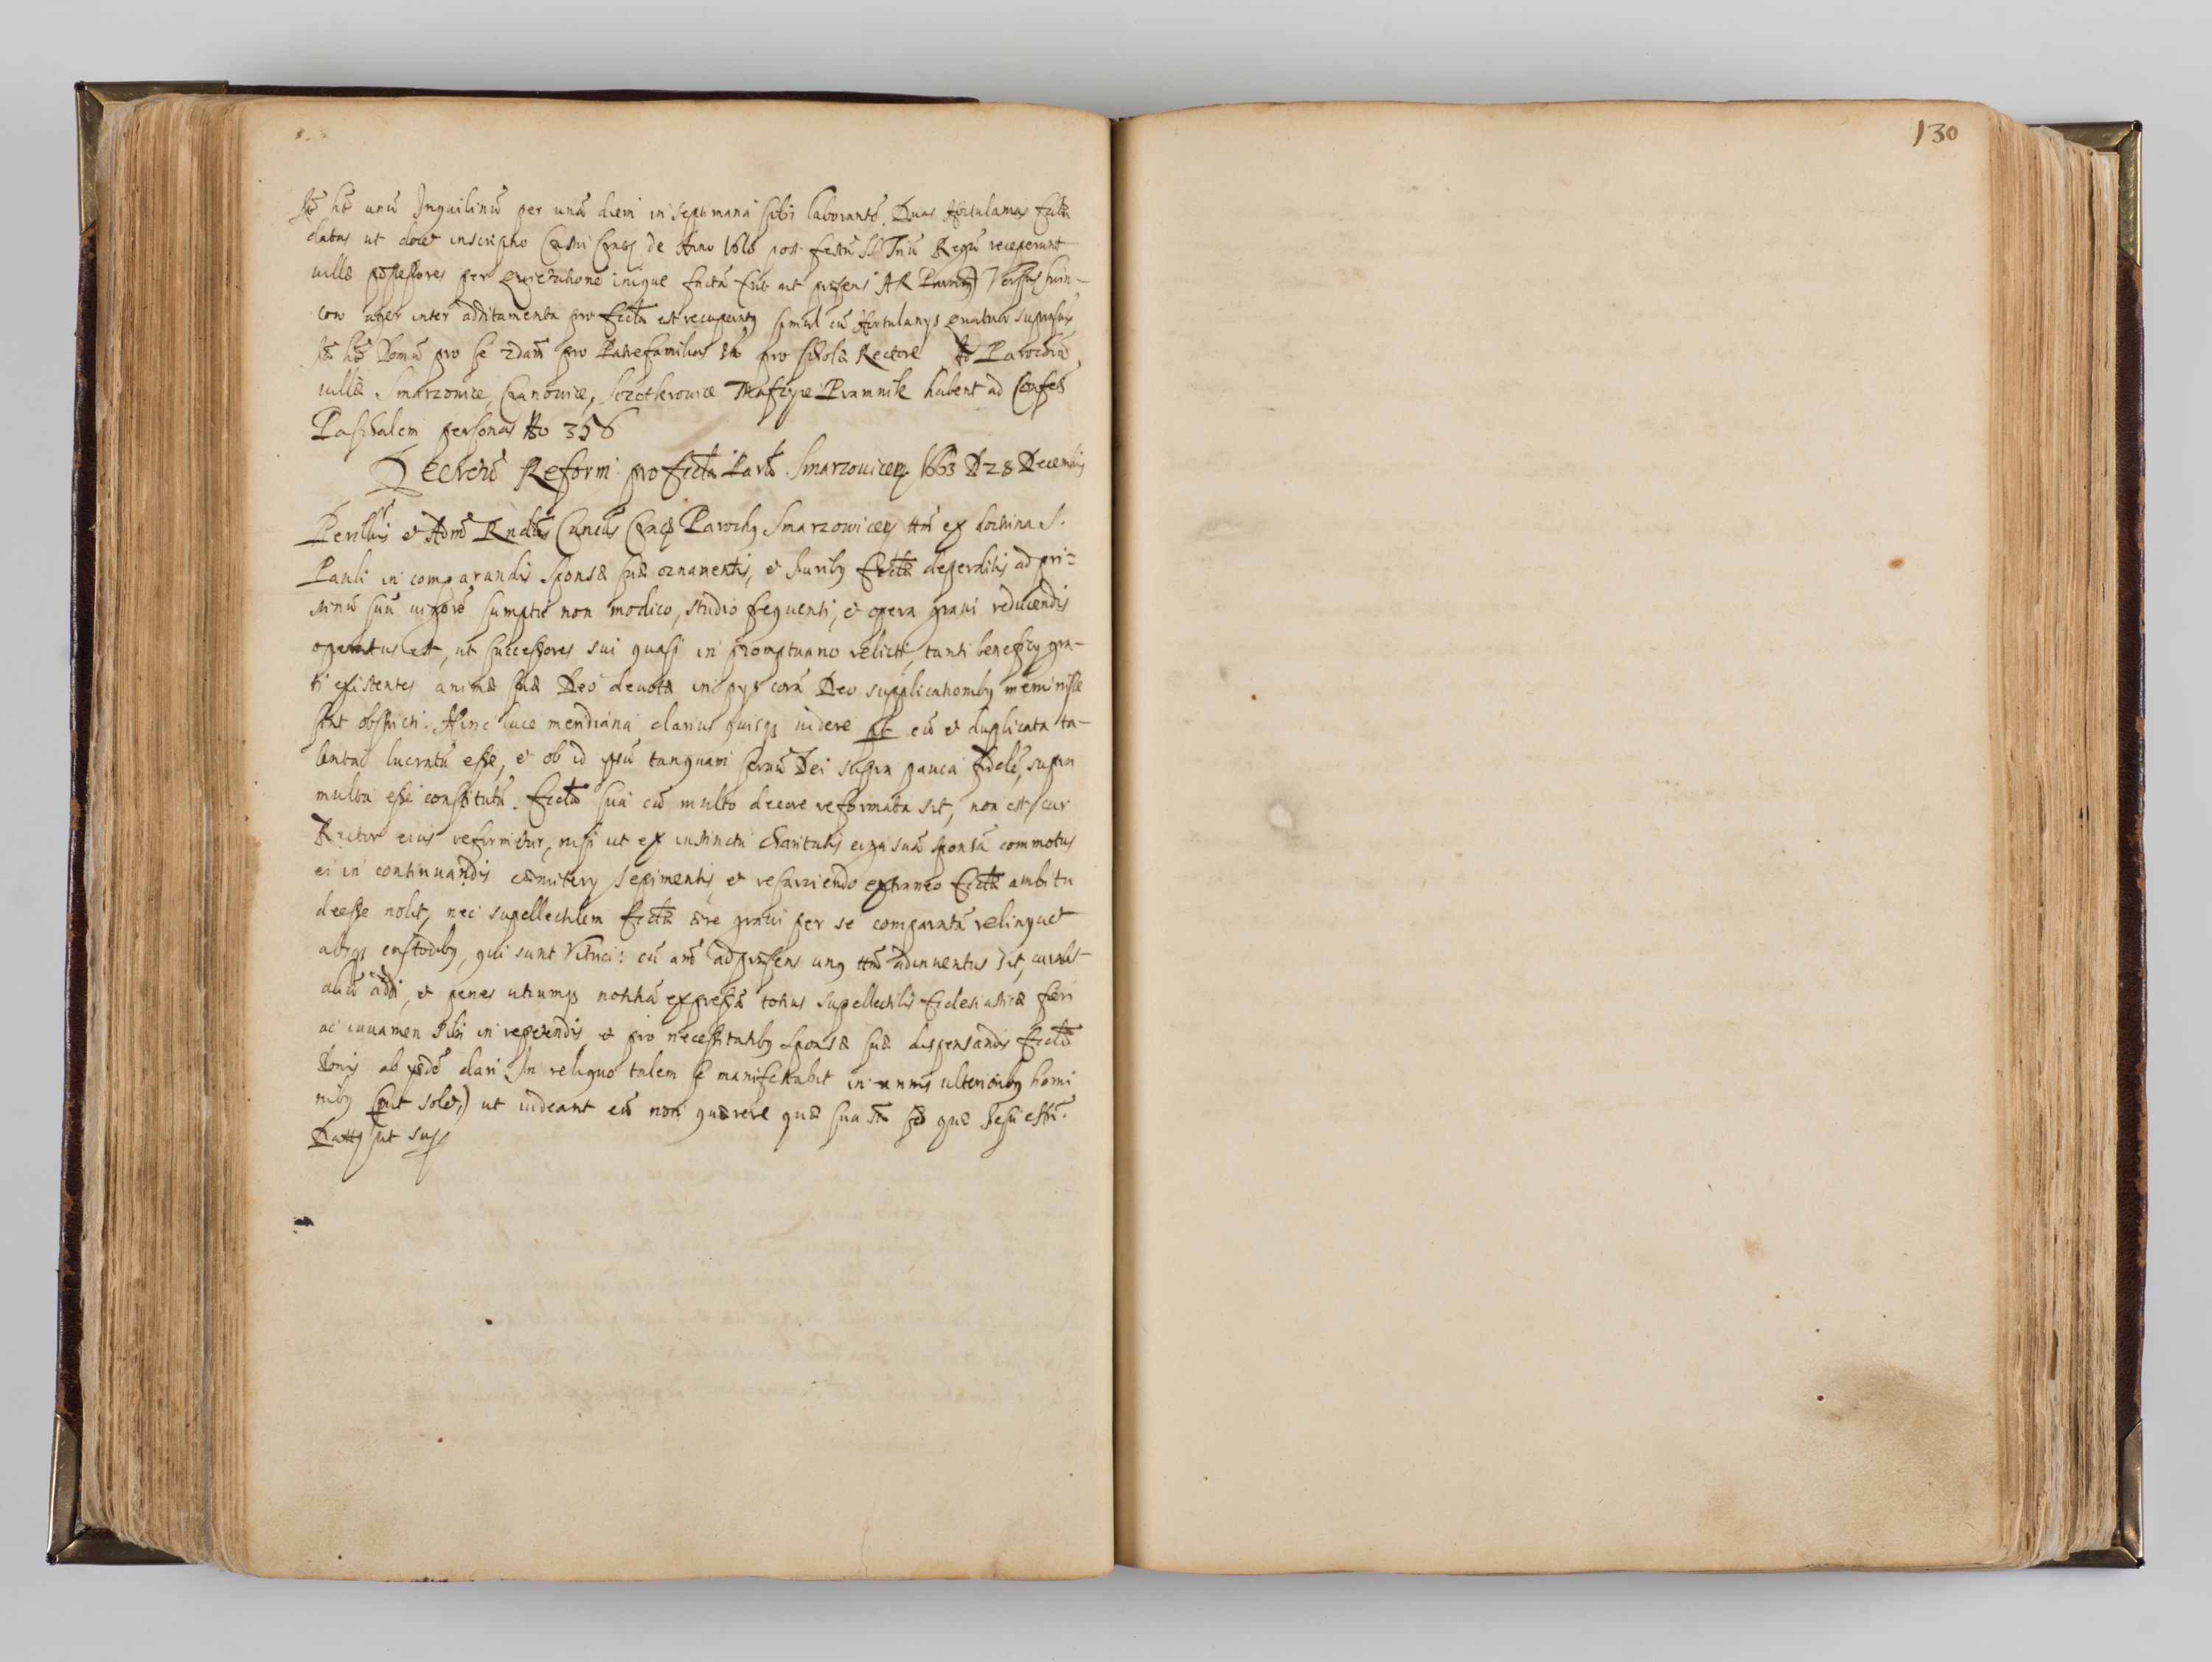 130
Itē hēt unū Inquilinū per unā diem in septimana sibi laborantē. Duas Hortulanias Ecclā
datas ut docet inscriptio Castri Crac. de Anno 1616 post festū SS Triū Regū receperunt
villæ possessores per inique factā sub aut præsens AR Parochꝰ Versus
ager inter additamenta pro Eccla est recuperatꝰ simul cū Hortulanijs quatuor
Itē hēt Domū pro se 2dam pro Patrefamilias pro scholæ Rectore Ad Parochiā
villæ Smarzowice, Czanowice, Szczotkowice Maszyce Pramnik habent ad Confes
Paschalem personas Nro 356
Decretū Reform: pro Eccla Parli Smarzouicen 1663 D 28 Decembris
Perillris et Admō Rndus Cancus Crac Parochꝰ Smarzowicen ttm ex doctrina S.
Pauli in comparandis Sponsæ suæ ornamentis, et Iuribꝰ Ecclæ deperditis ad pri=
stinū suū vigorē sumptu non modico, studio sequenti, et opera graui reducendis
operatus est, ut successores sui quasi in promptuario relicti, tanti beneficij gra-
ti existentes animæ suæ Deo deuotæ in pijs corā Deo supplicationibꝰ meminisse
sint obstricti. Hinc luce meridiana clarius quisqꝫ uidere pt eū et duplicata ta-
lenta lucratū esse, et ob id ipsū tanquam seruū Dei supra pauca fidelē, supra
multa esse constitutū. Eccla sua cū multo decore reformata sit, non est cur
Rector eius reformetur, nisi ut ex instinctu charitatis erga suā sponsā commotus
ei in continuandis cæmiterij sepimentis et resarciendo extraneo Ecclæ ambitu
deesse nolit, nec supellectilem Ecclæ ære graui per se comparatā relinquet
absqꝫ custodibꝰ, qui sunt Vitrici: cū aūt ad præsens unꝰ ttm adinuentus sit, curabit
aliū addi, et penes utrumqꝫ notitiā expressā totius supellectilis Ecclesiasticæ fieri
ac iuuamen sibi in regendis, et pro necessitatibꝰ Sponsæ suæ dispensandis Ecclæ
bonis ab ijsdē dari In reliquo talem se manifestabit in annis ulterioribꝰ homi
nibꝰ (put solet,) ut uideant eū non quærere quæ sua sūt sed quæ Iesu Chri.
Dattꝫ ut supra